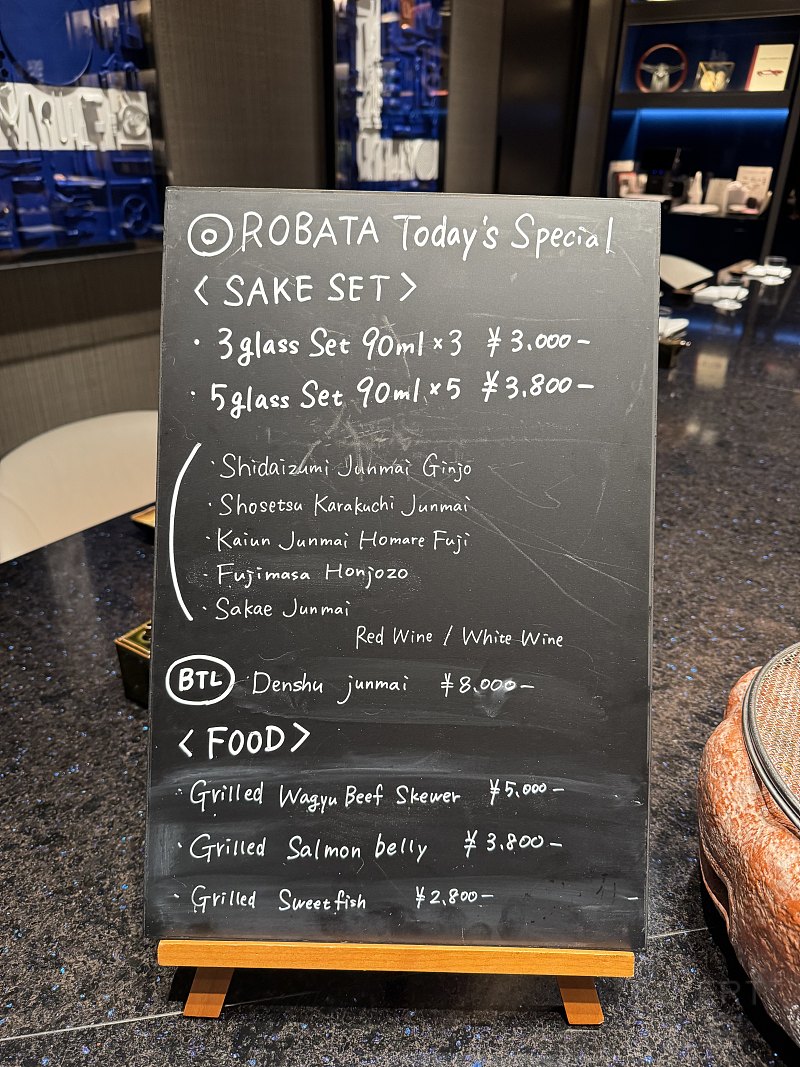 ROBATA Today's Special
< SAKE SET >
· 3glass Set 90ml×3 ¥3.000-
· 5glass Set 90ml×5 ¥3.800-
· Shidaizumi Junmai Ginjo
· Shosetsu Karakuchi Junmai
· Kaiun Junmai Homare Fuji
· Fujimasa Honjozo
· Sakae Junmai
Red Wine / White Wine
BTL · Denshu junmai ¥8.000-
< FOOD >
· Grilled Wagyu Beef Skewer ¥5.000-
· Grilled Salmon belly ¥3.800-
· Grilled Sweetfish ¥2.800-